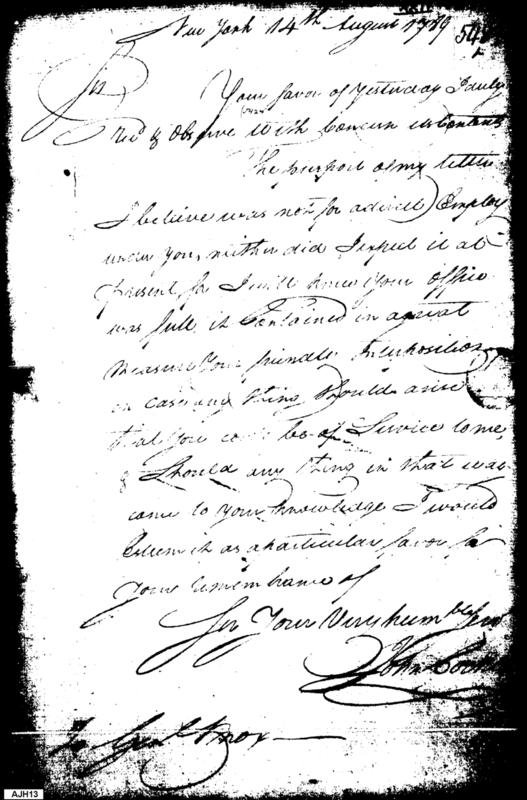 New York 14th August 1789
Sir
Your favor of Yesterday I duly
Rec'd & Observe with Concern its Contents
The purport of my letter
I believe was not for a direct Employ
under you, neither did I expect it at
present, for I well knew your office
was full it Contained in a great
measure Your friendly Interposition
in case any thing should arise
that you could be of Service to me,
& Should any thing in that way
come to your knowledge I would
Esteem it as a particular favor for
your remembrance of
Sir Your Very humble Serv
John
To Genl Knox
AJH13